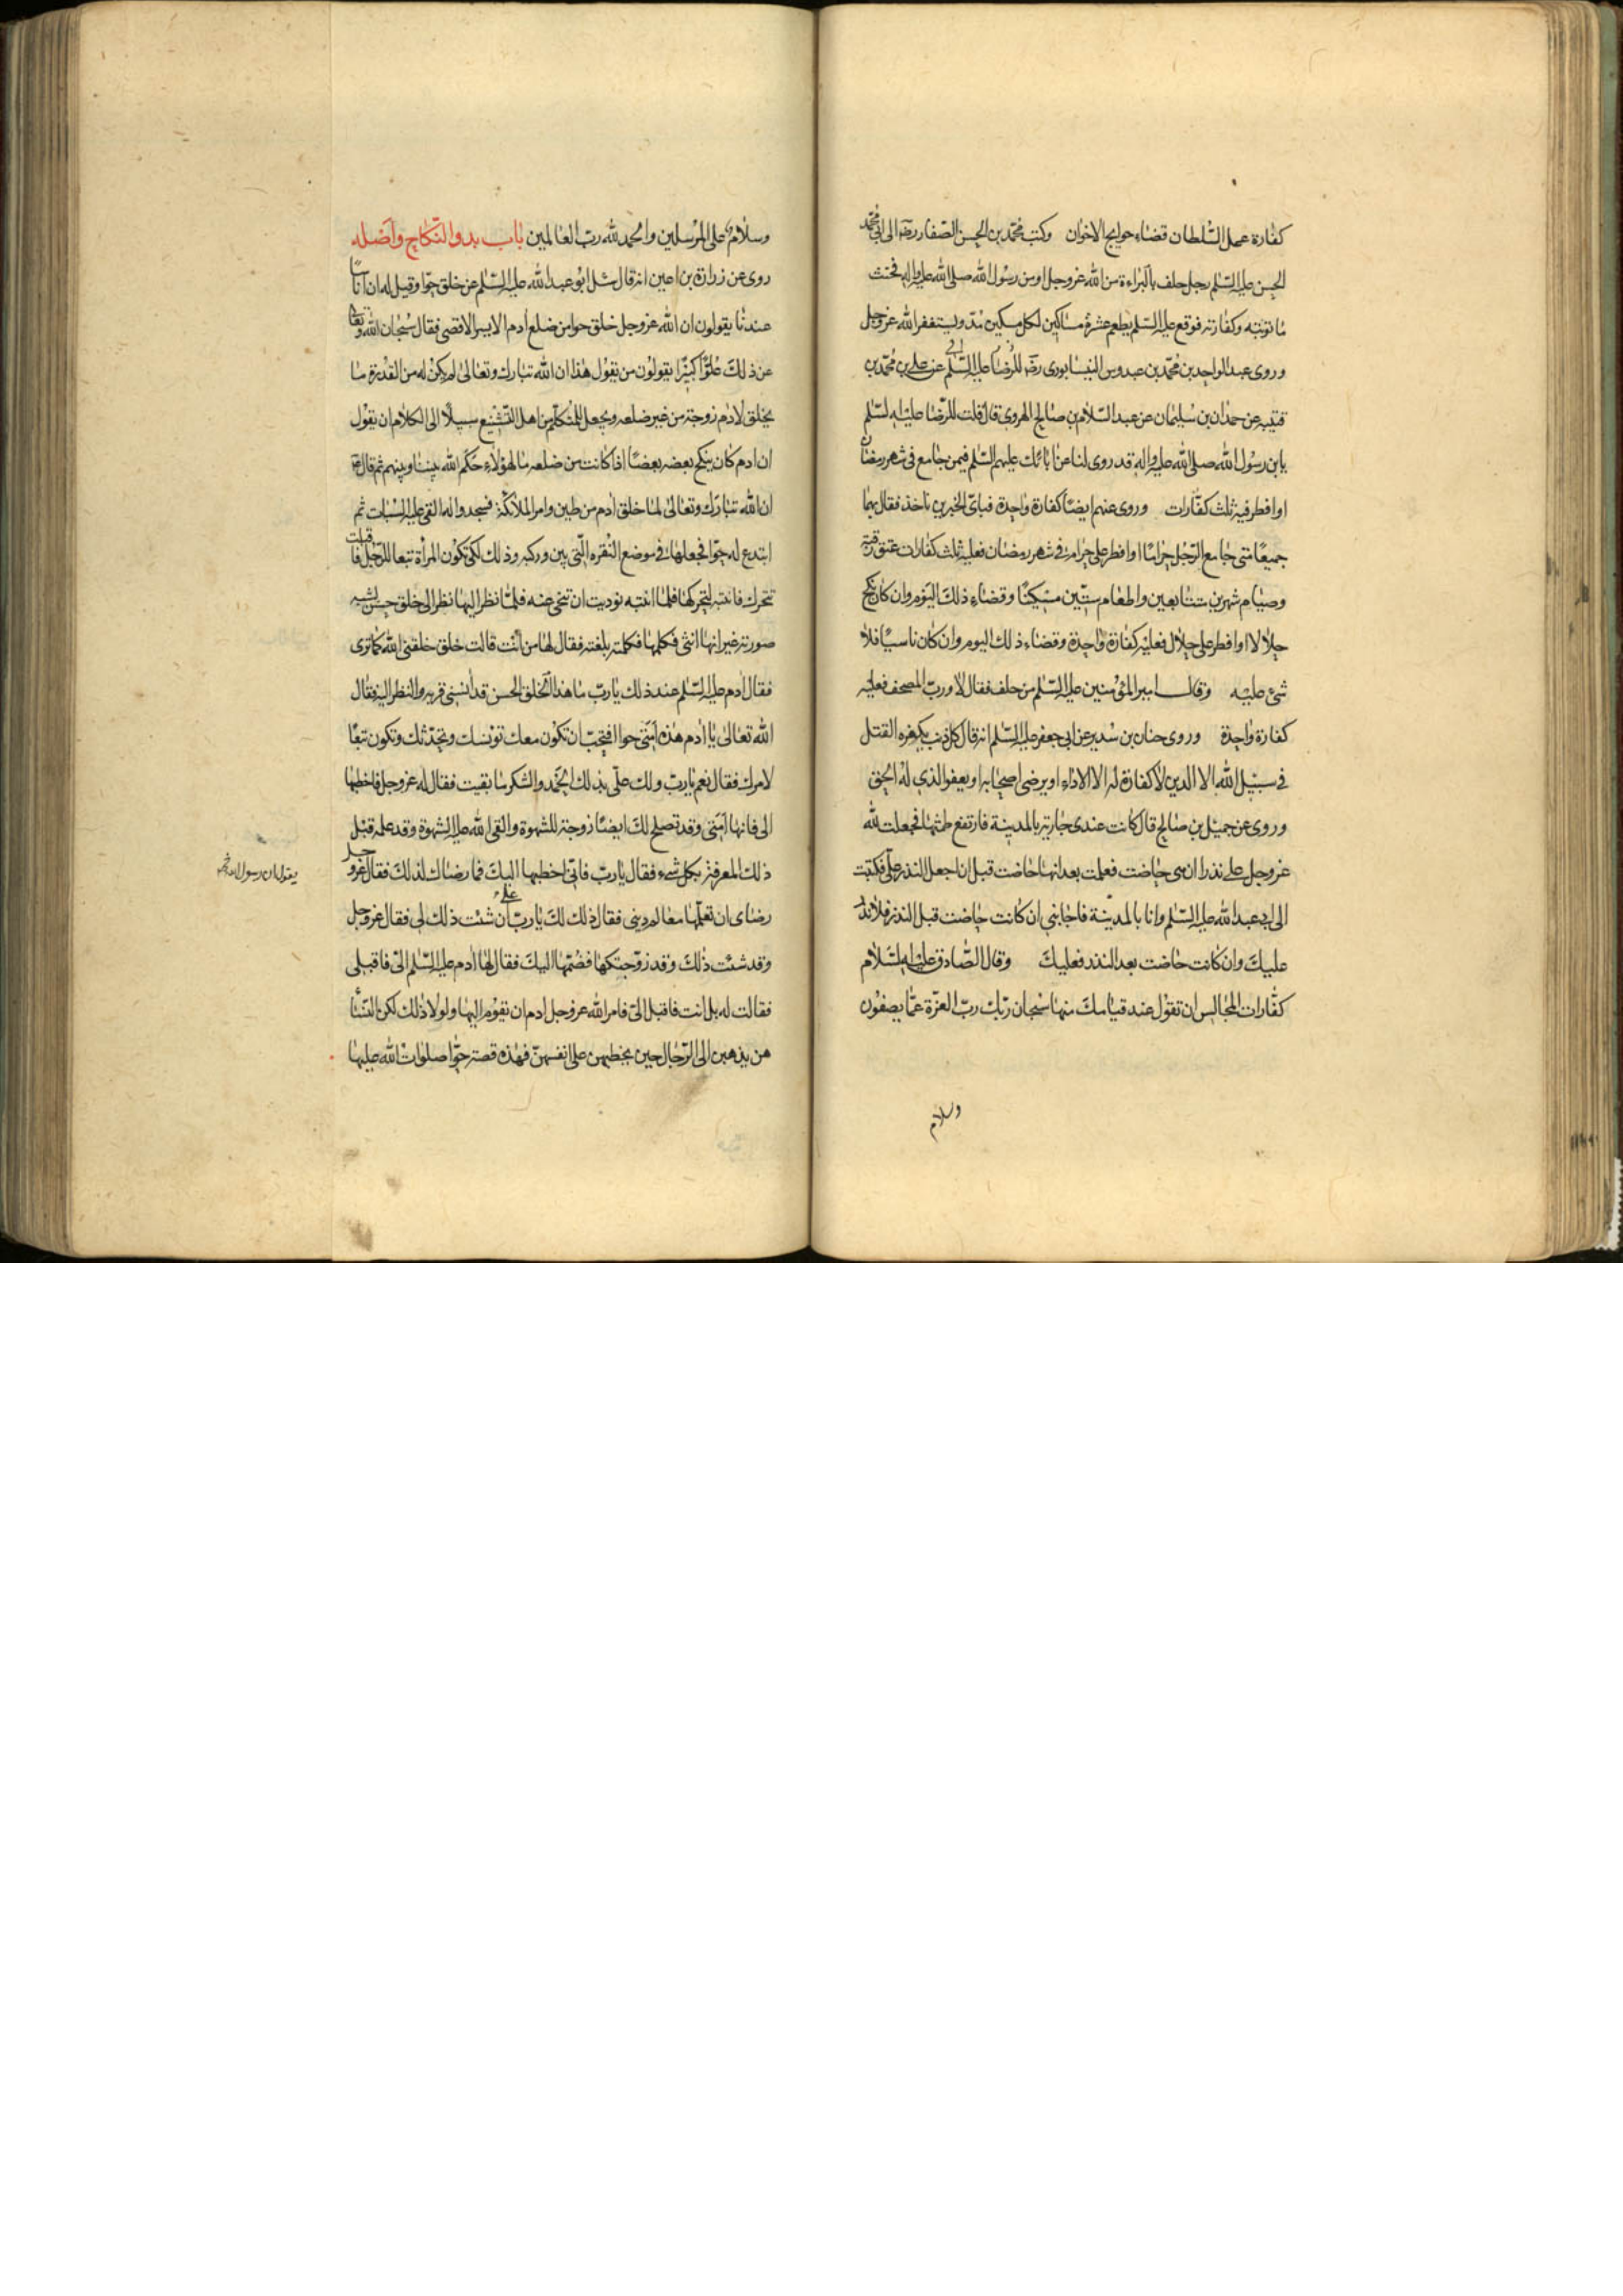 كفارة عمل السلطان قضاء حوايج الاخوان وكتب محمد بن الحسن الصفار رضه الى ابي محمد
الحسن عليه السلم رجل حلف بالبراءة من الله عز وجل او من رسول الله صلى الله عليه واله فحنث
ما توبته وكفارته فوقع عليه السلم يطعم عشرة مساكين لكل مسكين مد ويستغفر الله عز وجل
وروى عبد الواحد بن محمد بن عبدوس النيسابوري رضه عن علي بن محمد بن
قتيبه عن حمدان بن سليمان عن عبد السلام بن صالح الهروي قال قلت للرضا عليه السلم
يا بن رسول الله صلى الله عليه واله قد روى لنا عن ابائك عليهم السلم فيمن جامع في شهر رمضان
او افطر فيه ثلث كفارات وروى عنهم ايضا كفارة واحدة فباي الخبرين ناخذ فقال بهما
جميعا متى جامع الرجل حراما او افطر على حرام في شهر رمضان فعليه ثلث كفارات عتق رقبة
وصيام شهرين متتابعين واطعام ستين مسكينا وقضاء ذلك اليوم وان كان نكح
حلالا او افطر على حلال فعليه كفارة واحدة وقضاء ذلك اليوم وان كان ناسيا فلا
شئ عليه وقال امير المؤمنين عليه السلم من حلف فقال لا ورب المصحف فعليه
كفارة واحدة وروى حنان بن سدير عن ابي جعفر عليه السلم انه قال كل ذنب يكفره القتل
في سبيل الله الا الدين لا كفارة له الا الاداء او يرضى اصحابه او يعفو الذي له الحق
وروى عن جميل بن صالح قال كانت عندي جارية بالمدينة فارتفع طمثها فجعلت لله
عز وجل علي نذرا ان هي حاضت فعلمت بعد انها حاضت قبل ان اجعل النذر علي فكتبت
الى ابي عبد الله عليه السلم وانا بالمدينة فاجابني ان كانت حاضت قبل النذر فلا نذر
عليك وان كانت حاضت بعد النذر فعليك وقال الصادق عليه السلام
كفارات المجالس ان تقول عند قيامك منها سبحان ربك رب العزة عما يصفون
وسلام
وسلام على المرسلين والحمد لله رب العالمين باب بدو النكاح واصله
روى عن زرارة بن اعين انه قال سئل ابو عبد الله عليه السلم عن خلق حوا وقيل له ان اناسا
عندنا يقولون ان الله عز وجل خلق حوا من ضلع ادم الايسر الاقصى فقال سبحان الله وتعالى
عن ذلك علوا كبيرا يقولون من يقول هذا ان الله تبارك وتعالى لم يكن له من القدرة ما
يخلق لادم زوجة من غير ضلعه ويجعل للمتكلم من اهل التشنيع سبيلا الى الكلام ان يقول
ان ادم كان ينكح بعضه بعضا اذا كانت من ضلعه ما لهؤلاء حكم الله بيننا وبينهم ثم قال
ان الله تبارك وتعالى لما خلق ادم من طين وامر الملائكة فسجدوا له القى عليه السبات ثم
ابتدع له حوا فجعلها في موضع النقره التي بين وركيه وذلك لكي تكون المراة تبعا للرجل فاقبلت
تتحرك فانتبه لتحركها فلما انتبه نوديت ان تنحي عنه فلما نظر اليها نظر الى خلق حسن لشبه
صورته غير انها انثى فكلمها فكلمته بلغته فقال لها من انت قالت خلق خلقني الله كما ترى
فقال ادم عليه السلم عند ذلك يا رب ما هذا الخلق الحسن قد انسني قربه والنظر اليه فقال
الله تعالى يا ادم هذه امتي حوا افتحب ان تكون معك تونسك وتحدثك وتكون تبعا
لامرك فقال نعم يا رب ولك علي بذلك الحمد والشكر ما بقيت فقال له عز وجل فاخطبها
الى فانها امتي وقد تصلح لك ايضا زوجة للشهوة والقى الله عليه الشهوة وقد علمه قبل
ذلك المعرفة بكل شيء فقال يا رب فاني اخطبها اليك فما رضاك لذلك فقال عز وجل
رضاي ان تعلمها معالم ديني فقال ذلك لك يا رب علي ان شئت ذلك لي فقال عز وجل
وقد شئت ذلك وقد زوجتكها فضمها اليك فقال لها ادم عليه السلم الي فاقبلي
فقالت له بل انت فاقبل الي فامر الله عز وجل ادم ان يقوم اليها ولولا ذلك لكن النساء
هن يذهبن الى الرجال حين يخطبهن على انفسهن فهذه قصة حوا صلوات الله عليها
يقول ان رسول الله